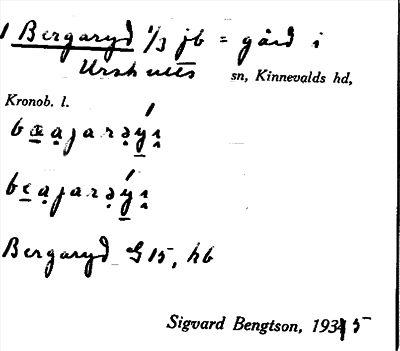 1 Bergaryd 1/3 jb = gård i
Urshults sn, Kinnevalds hd,
Kronob. l.
Bergaryd G 15, hb
Sigvard Bengtson, 1935